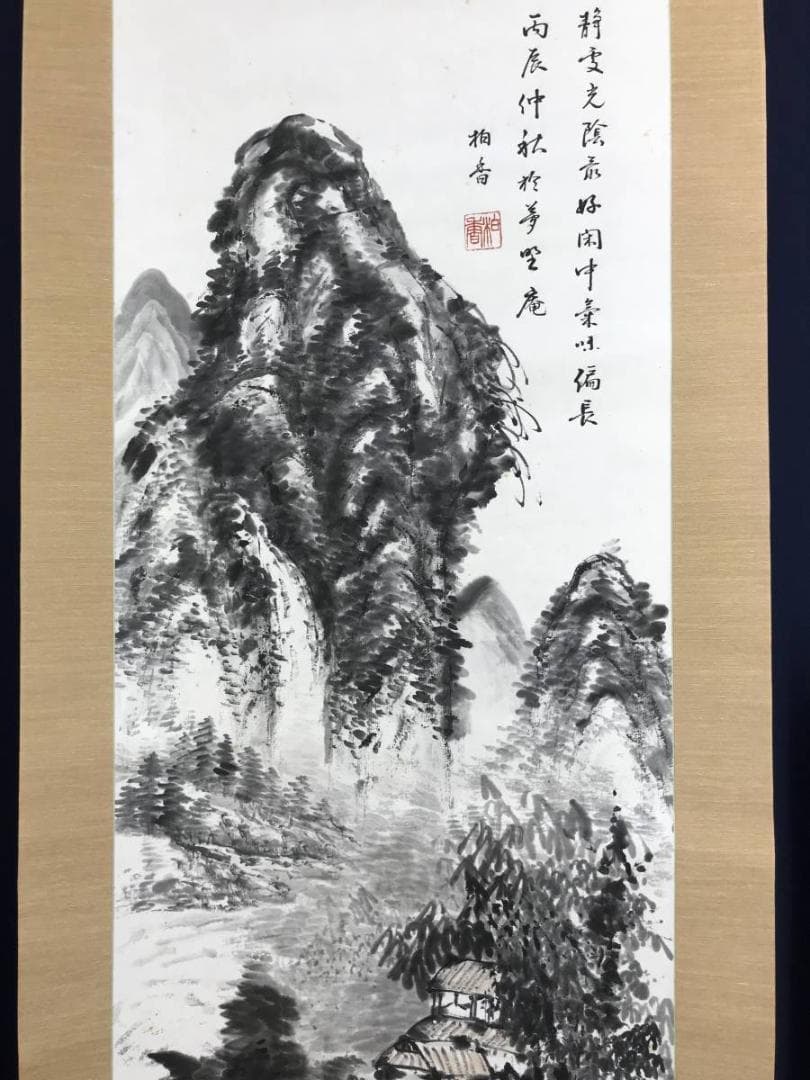 静處光陰最好閑中氣味偏長
丙辰仲秋於夢墅庵
柏香
柏香